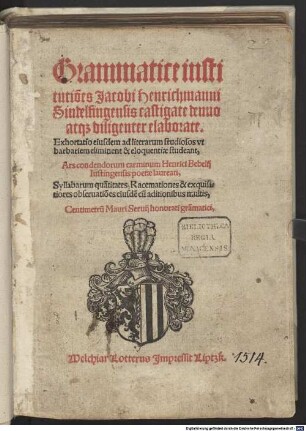 Grammatice insti
tutiões Jacobi Henrichmanni
Sindelfingensis castigate denuo
atqz diligenter elaborate.
Exhortatio eiusdem ad literarum studiosos vt
barbariem eliminent & eloquentiæ studeant,
Ars condendorum carminum Henrici Bebelij
Iustingensis poetæ laureati,
Syllabarum quātitates. Racemationes & exquisi
tiores obseruatiões eiusdē cū aditionibus multis,
Centimetrū Mauri Seruij honorati grāmatici,
BIBLIOTHECA
REGIA
MONACENSIS.
Melchiar Lotterus Impressit Liptzk.
1514.